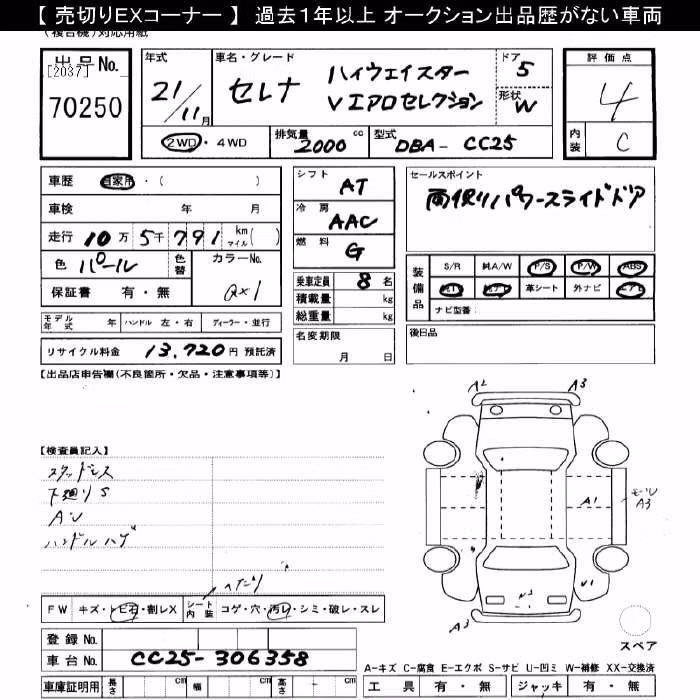 【 売切りEXコーナー 】 過去1年以上 オークション出品歴がない車両
(複合機)対応用紙
出品No.
[2037]
70250
年式
21/11月
車名・グレード
セレナ
ハイウェイスター
Vエアロセレクション
ドア 5
形状 W
評価点
4
内装 C
2WD・4WD
排気量 2000 cc
型式 DBA- CC25
車歴 自家用・( )
車検 年 月
走行 10万 5千791 km マイル( )
色 パール
色替
カラーNo.
QX1
保証書 有・無
シフト AT
冷房 AAC
燃料 G
乗車定員 8 名
積載量 kg
総重量 kg
名変期限
月 日
セールスポイント
両側パワースライドドア
装備品
S/R 純A/W P/S P/W ABS
革シート 外ナビ
ナビ型番:
後日品
モデル年式 年 ハンドル 左・右 ディーラー・並行
リサイクル料金 13,720 円 預託済
【出品店申告欄(不良箇所・欠品・注意事項等)】
【検査員記入】
スタッドレス
下廻りS
AU
ハンドルハゲ
A2
A3
A1
モール
A3
A3
ヘタリ
FW キズ・トビ石・割レX シート内装 コゲ・穴・汚レ・シミ・破レ・スレ
登録 No.
車台 No. CC25-306358
車庫証明用 長さ cm 幅 cm 高さ cm
スペア
A-キズ C-腐食 E-エクボ S-サビ U-凹ミ W-補修 XX-交換済
工具 有・無 ジャッキ 有・無